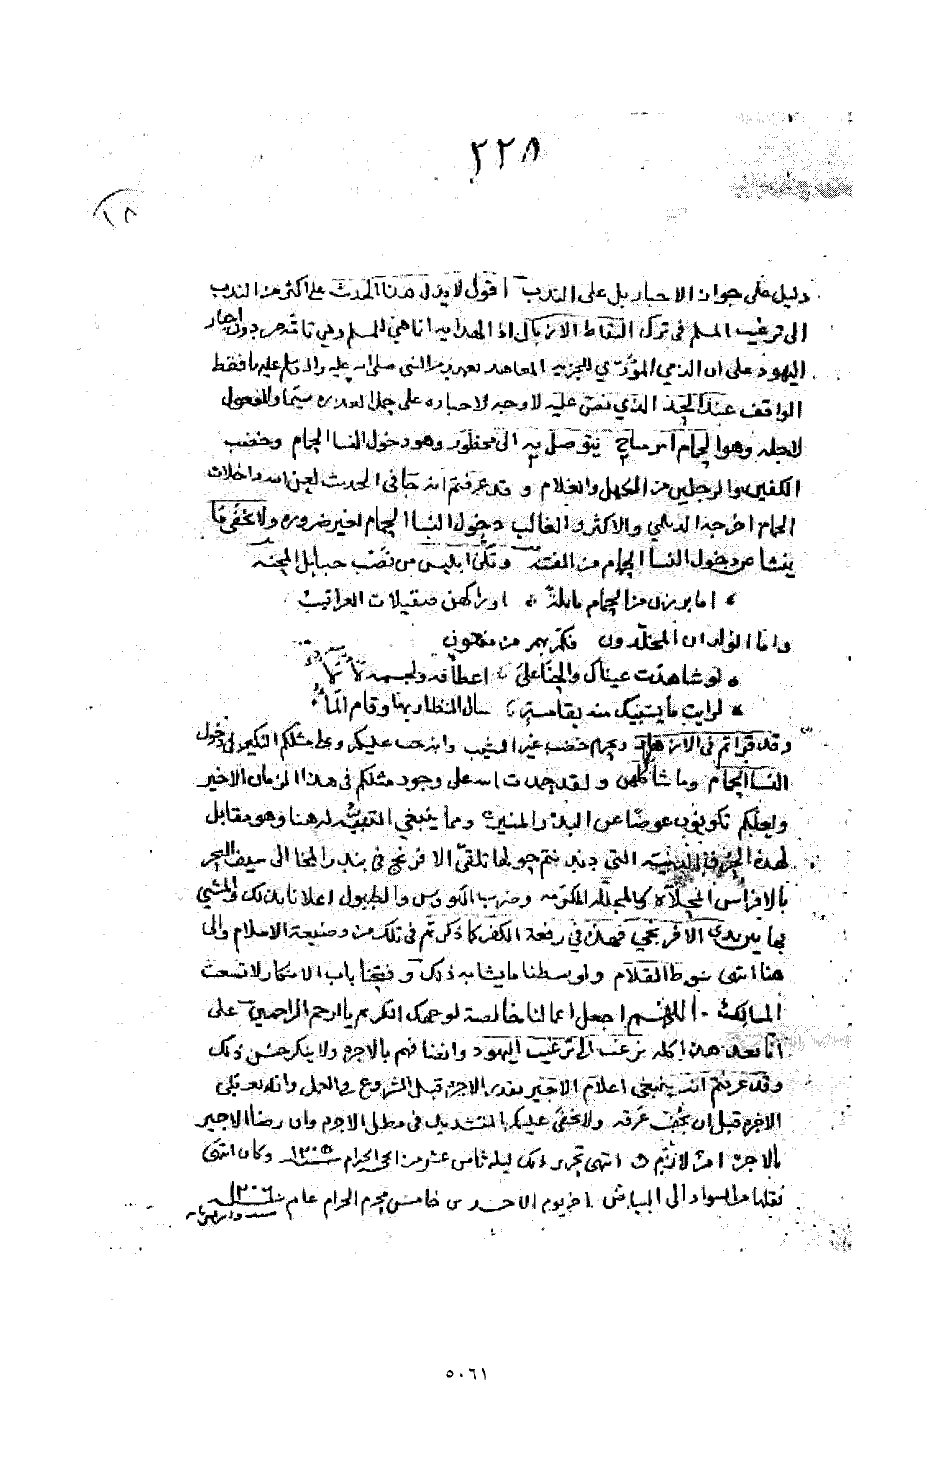 ٢٢٨
١٨
دليل على جواز الاجبار بل على الندب اقول لا يدل هذا الحدث على اكثر من الندب
الى ترغيب المسلم في ترك التقاط الازبال اذ الهدايه انما هي للمسلم وهي قاصرة عن دون اجبار
اليهود على ان الذمي المؤدي للجزيه المعاهد بعهد من النبي صلى الله عليه واله وسلم عليه ما فقط
الواقف عند الحد الذي نص عليه لا وجه لاجباره على هذا العذره سيما والمفعول
لاجله وهو الحمام امر مباح يتوصل به الى محظور وهو دخول النسا الحمام وخضب
الكفين والرجلين من الكهل والغلام وقد عرفتم انه جا في الحدث لعن الله داخلات
الحمام اخرجه الديلمي والاكثر والغالب دخول النسا الحمام لغير ضروره ولا يخفى ما
ينشا عن دخول النسا الحمام من الفتنه وتمكن ابليس من نصب حبايل المحنه
اما برزن من الحمام مايلة اوراكهن صقيلات العراقيب
واما الولدان المخلدون فكم بهم من مفتون
لو شاهدت عيناك والحنا على اعطافه ولجسمه لألاء
لرايت ما يسبيك منه بقامة سال النظار بها وقام الماء
وقد قراتم في الازهار وبحرم خضب غير الشيب وانه يجب عليكم وعلى مثلكم النكير في دخول
النسا الحمام وما شاكلهن ولقد حمدت الله على وجود مثلكم في هذا الزمان الاخير
ولعلكم تكونون عوضا عن البدر المنير ومما ينبغي التنبيه له هنا وهو مقابل
لهذه الحرفة الدنيه التي دندنتم حولها تلقي الافرنج في بندر المخا الى سيف البحر
بالافراس المجللة كالمجلله المكرمه وضرب الكووس والطبول اعلانا بذلك والمشي
بها بين يدي الافرنجي فهذا في رفعة الكفر كما ذكرتم في تلك من وضيعة الاسلام والى
هنا انتهى شوط القلام ولو بسطنا ما يشابه ذلك وفتحنا باب الانكار لاتسعت
المسالك اللهم اجعل اعمالنا خالصة لوجهك الكريم يا ارحم الراحمين على
انا بعد هذا كله نرغب الى ترغيب اليهود وارضائهم بالاجره ولا ينكر حسن ذلك
وقد عرفتم انه ينبغي اعلام الاجير بقدر الاجره قبل الشروع في العمل وانه يعطى
الاجره قبل ان يجف عرقه ولا يخفى عليكم التشديد في مطل الاجره وان رضا الاجير
بالاجره امر لازم انتهى تحرير ذلك ليلة ثامن عشر من المحرم الحرام سنة ١٢٠٥ وكان انتهى
نقلها من السواد الى البياض اخر يوم الاحد خامس محرم الحرام عام سنة ١٢٠٦
٥٠٦١